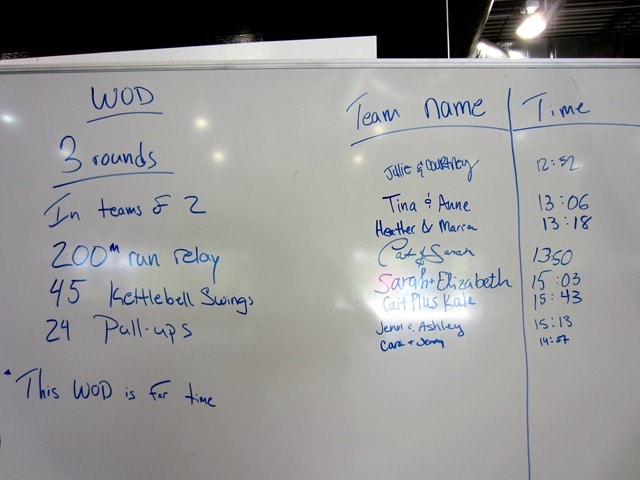 WOD
3 rounds
In teams of 2
200m run relay
45 Kettlebell Swings
24 Pull-ups
This WOD is for time
Team name Time
Jillie & Courtney 12:52
Tina & Anne 13:06
Heather & Marra 13:18
Cat & Sarah 1350
Sarah + Elizabeth 15:03
Cait Plus Kate 15:43
Jenn & Ashley 15:13
Cara + Jenny 14:57